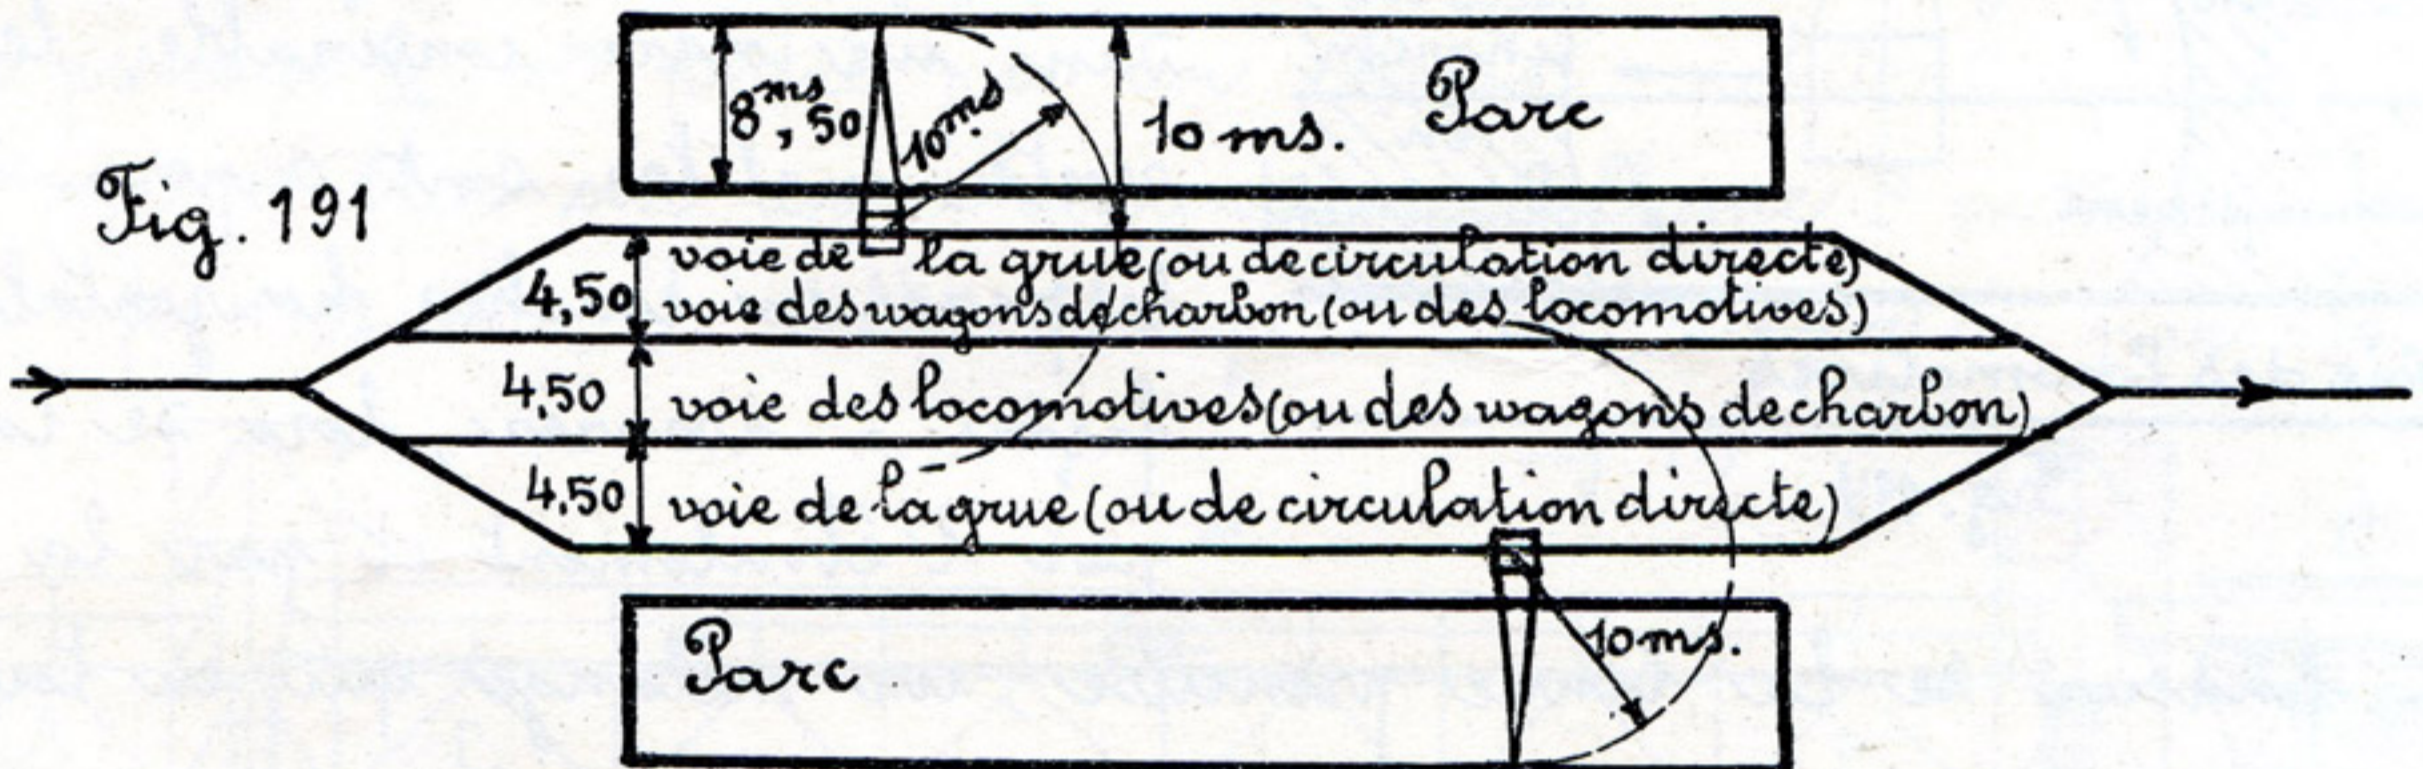 8ms,50
10 ms
10 ms.
Parc
Fig. 191
4,50
voie de la grue (ou de circulation directe)
voie des wagons de charbon (ou des locomotives)
4,50
voie des locomotives (ou des wagons de charbon)
4,50
voie de la grue (ou de circulation directe)
Parc
10 ms.